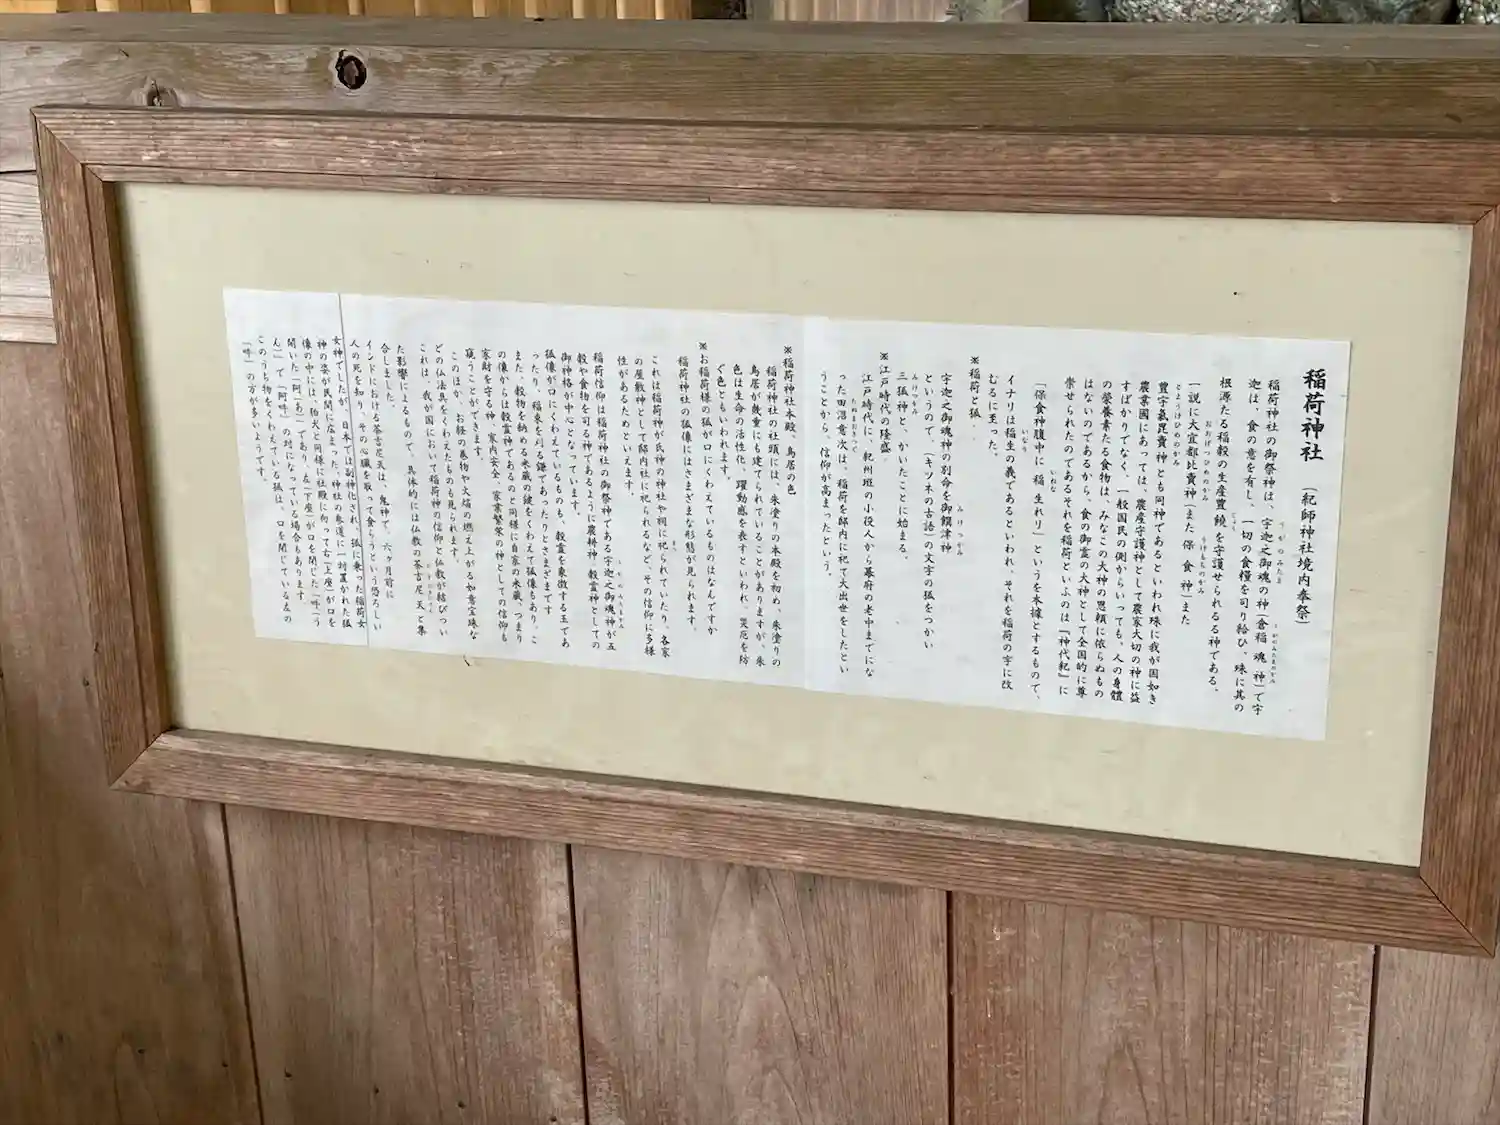 稲荷神社 (紀師神社境内奉祭)
稲荷神社の御祭神は、宇迦之御魂の神(倉稲魂神)で宇
迦は、食の意を有し、一切の食糧を司り給ひ、殊に其の
根源たる稲穀の生産豊饒を守護せられるる神である。
一説に大宜都比賣神(また保食神)また
豊宇氣毘賣神とも同神であるといわれ殊に我が国如き
農業國にあっては、農産守護神として農家大切の神に益
すばかりでなく、一般国民の側からいっても、人の身體
の榮養素たる食物は、みなこの大神の恩頼に依らぬもの
はないのであるから、食の御霊の大神として全国的に尊
崇せられたのであるそれを稲荷といふのは『神代紀』に
「保食神腹中に稲生れり」というを本據とするもので、
イナリは稲生の義であるといわれ、それを稲荷の字に改
むるに至った。
※稲荷と狐
宇迦之御魂神の別命を御饌津神
というので、(キツネの古語)の文字の狐をつかい
三狐神と、かいたことに始まる。
※江戸時代の隆盛
江戸時代に、紀州班の小役人から幕府の老中までにな
った田沼意次は、稲荷を邸内に祀て大出世をしたとい
うことから、信仰が高まったという。
※稲荷神社本殿、鳥居の色
稲荷神社の社頭には、朱塗りの本殿を初め、朱塗りの
鳥居が幾重にも建てられていることがありますが、朱
色は生命の活性化、躍動感を表すといわれ、災厄を防
ぐ色ともいわれます。
※お稲荷様の狐が口にくわえているものはなんですか
稲荷神社の狐像にはさまざまな形態が見られます。
これは稲荷神が氏神の神社や祠に祀られていたり、各家
の屋敷神として邸内社に祀られるなど、その信仰に多様
性があるためといえます。
稲荷信仰は稲荷神社の御祭神である宇迦之御魂神が五
穀や食物を司る神であるように農耕神、穀霊神としての
御神格が中心となっています。
狐像が口にくわえているものも、穀霊を象徴する玉であ
ったり、稲束を刈る鎌であったりとさまざまです
また、穀物を納める米蔵の鍵をくわえて狐像もあり、こ
の像からは穀霊神であるのと同様に自家の米蔵、つまり
家財を守る神、家内安全、家業繁栄の神としての信仰も
窺うことができます。
このほか、お経の巻物や火焔の燃え上がる如意宝珠な
どの仏法具をくわえたものも見られます。
これは、我が国において稲荷神の信仰と仏教が結びつい
た影響によるもので、具体的には仏教の荼吉尼天と集
合しました。
インドにおける荼吉尼天は、鬼神で、六ヶ月前に
人の死を知り、その心臓を取って食らうという恐ろしい
女神でしたが、日本では副神化され、狐に乗った稲荷女
神の姿が民間に広まった。神社の参道に一対置かれた狐
像の中には、狛犬と同様に社殿に向って右(上座)が口を
開いた「阿(あ)」であり、左(下座)が口を閉じた「吽(う
ん)」で「阿吽」の対になっている場合もあります。
このうち物をくわえている狐は、口を閉じている左の
「吽」の方が多いようです。